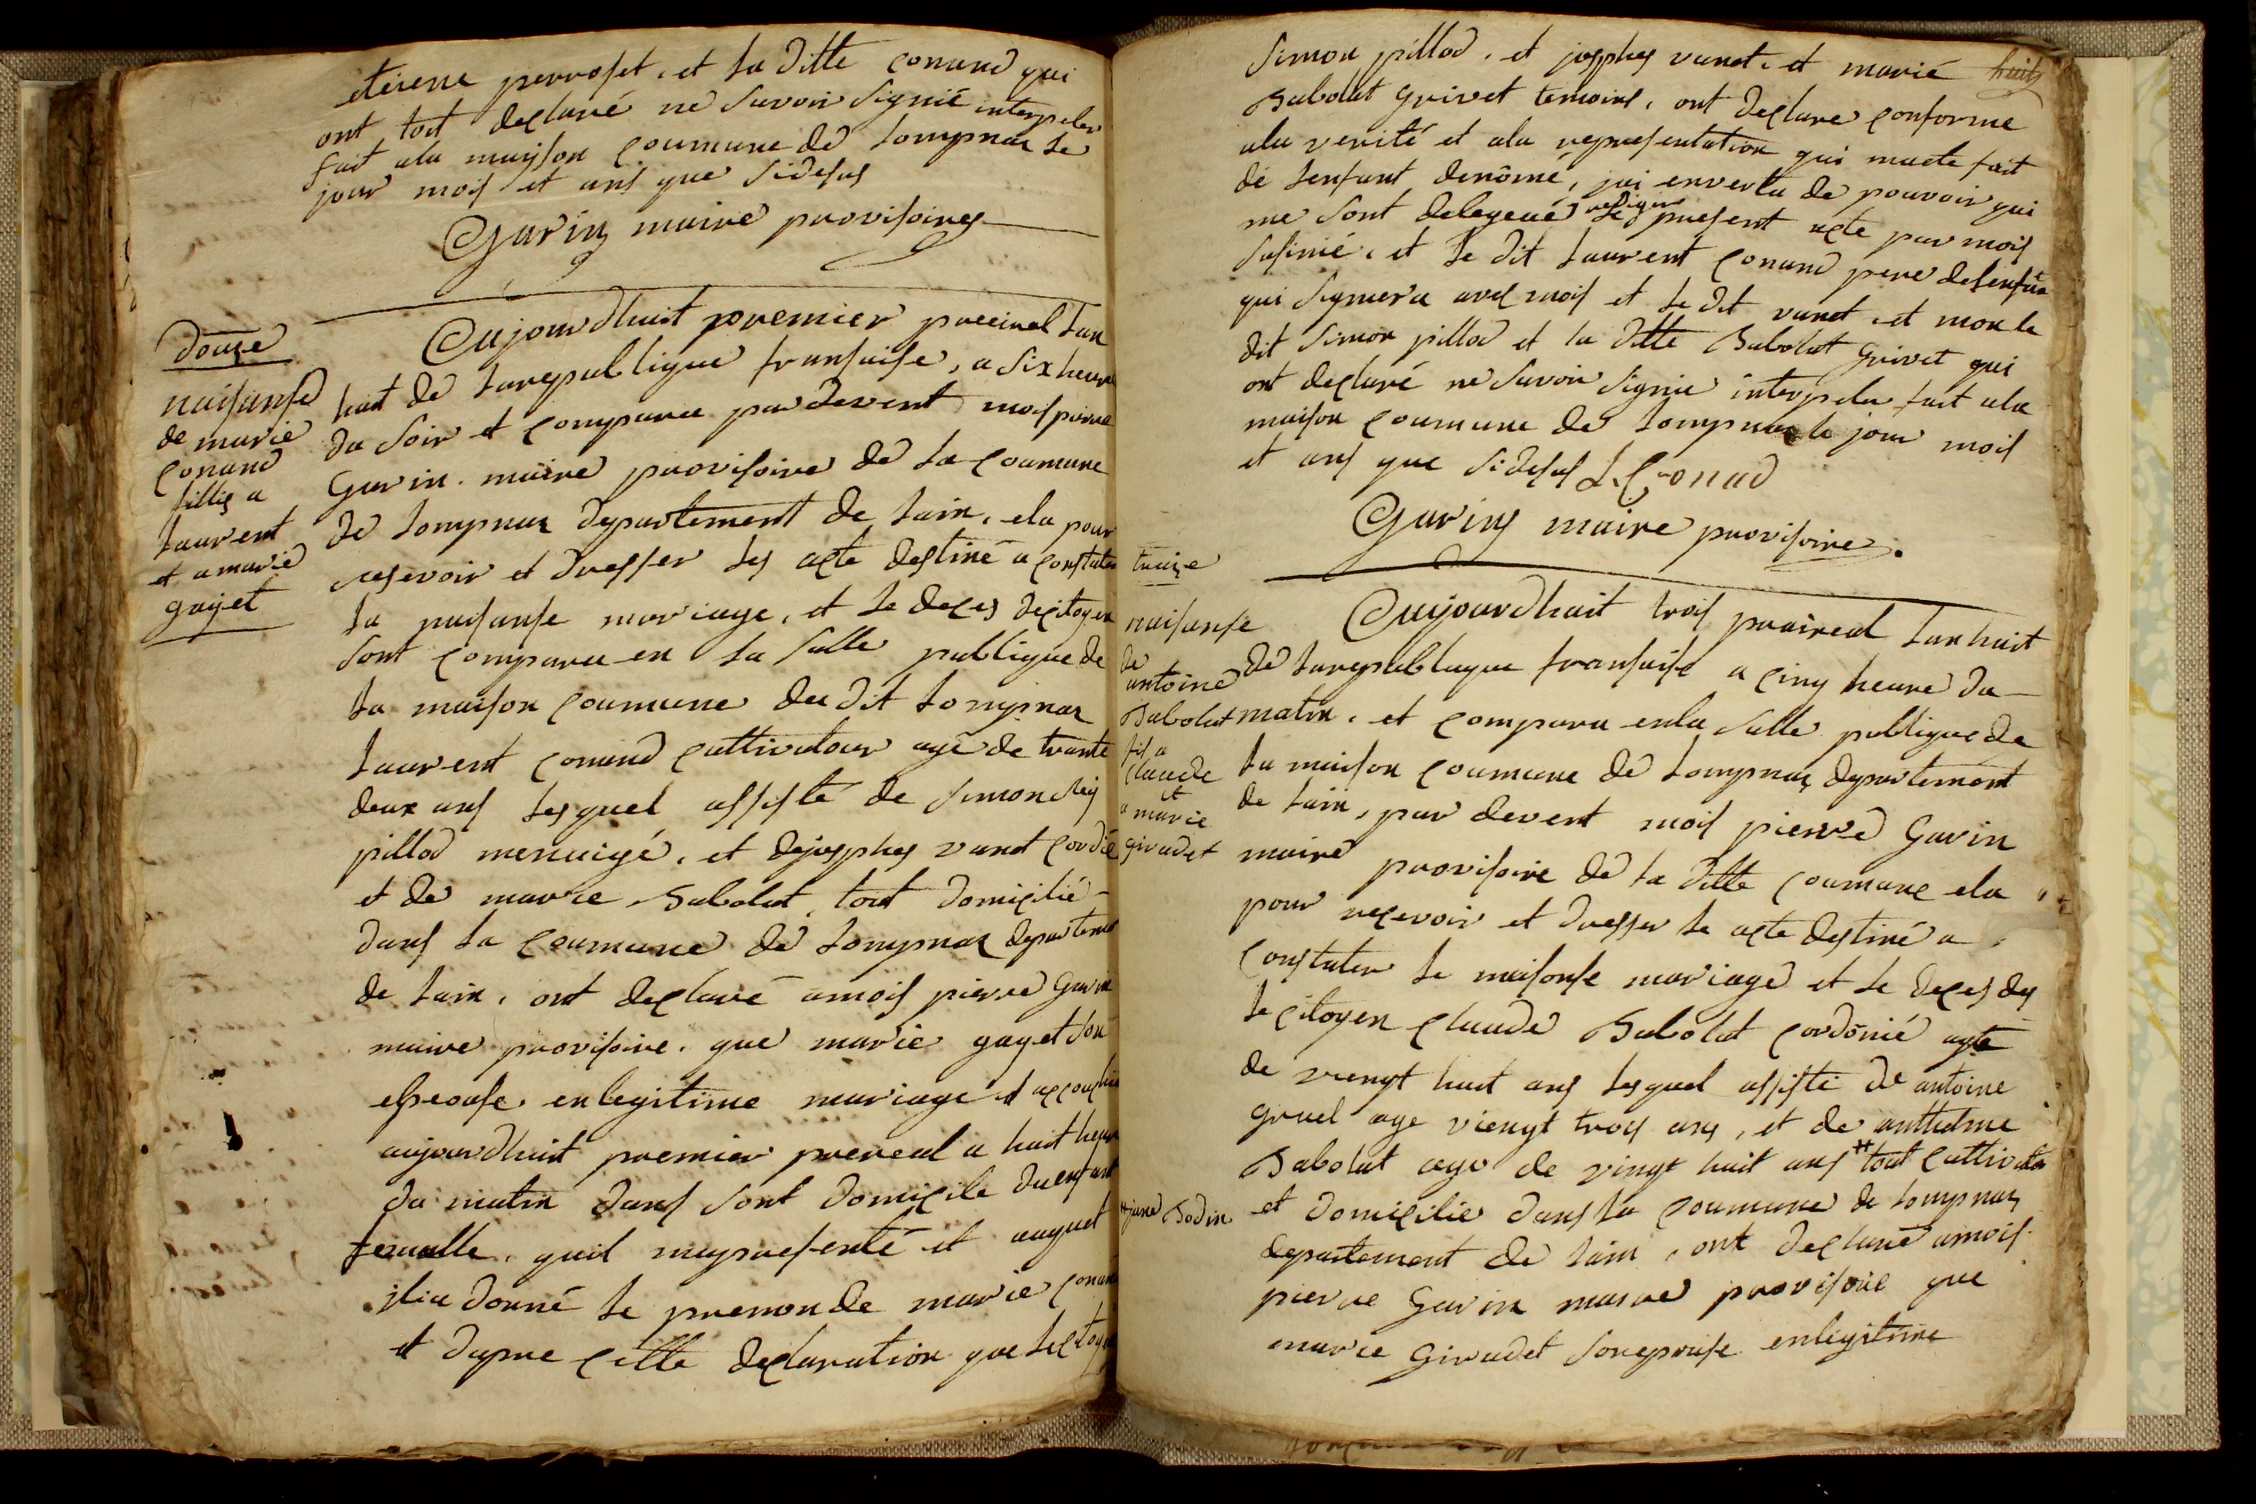 etiene perroset, et la ditte conand qui
ont tout declaré ne savoir signié interpeler
fait ala maison coumune de lompnas le
jour mois et ans que sidesus
Garin maire provisoires
douze
naisanse
de marie
conand
fillie a
laurent
et a marie
gayet
Aujourdhuit premier preireal lan
huit de larepublique fransaise, a six heure
du soir et comparu par devent mois pierre
Garin maire provisoire de la coumune
de lompnas departement de lain, elu pour
resevoir et dresser les acte destiné a constater
la naisanse mariage, et le deces decitoyen
sont comparu en la salle publique de
la maison coumune du dit lompnas
laurent conand cultivatour agé de trante
deux ans lesquel assisté de simon
pillod menuigé, et dejosphes vanet cordié
et de marie Babolat, tout domicilié
dans la coumune de lompnas departement
de lain, ont declaré amois pierre Garin
maire provisoire que marie gayet son
espeouse enlegitime mariage et accouchée
aujourdhuit premier prereal a huit heure
du matin dans sont domicile duenfant
femelle, quil mapresenté et auquel
ilia donné le prenon de marie conand
et dapre cette declaration que lecitoyen
huits
simon pillod, et josphes vanet, et marie
Babolat Grivet temoins, ont declare conforme
ala verité et ala representation qui maete fait
de lenfant denômé, jai envertu de pouvoir qui
me sont delegeué rediger le present acte par mois
susinié, et le dit laurent conand pere delenfan
qui signiera avec mois et le dit vanet, et non le
dit simon pillod et la ditte Babolat Grivet qui
ont declaré ne savoir signie interpeler fait ala
maison coumune de lompnas le jour mois
et ans que sidesus L Conad
Garins maire provisoire.
traize
naisanse
de
antoine
Babolat
fis a
claude
et
a marie
giradet
Aujourdhuit trois praireal lan huit
de larepublique fransaise a cinq heure du
matin, et comparu enla salle publique de
la maison coumune de lompnas departement
de lain, par devent mois pierre Garin
maire provisoire de la ditte coumune elu
pour recevoir et dresser le acte destiné a
constater le naisanse mariage et le deces des
le citoyen claude Babolat cordônié agé
de viengt huit ans lesquel assisté de antoine
gruel age viengt trois ans, et de anthelme
Babolat age de vingt huit ans # tout cultivater
# jane Bodin
et domicilie dans la coumune de lompnas
departement de lain, ont declaré amois
pierre Garin maire provisoire que
marie Giradet sonepouse enlegitime